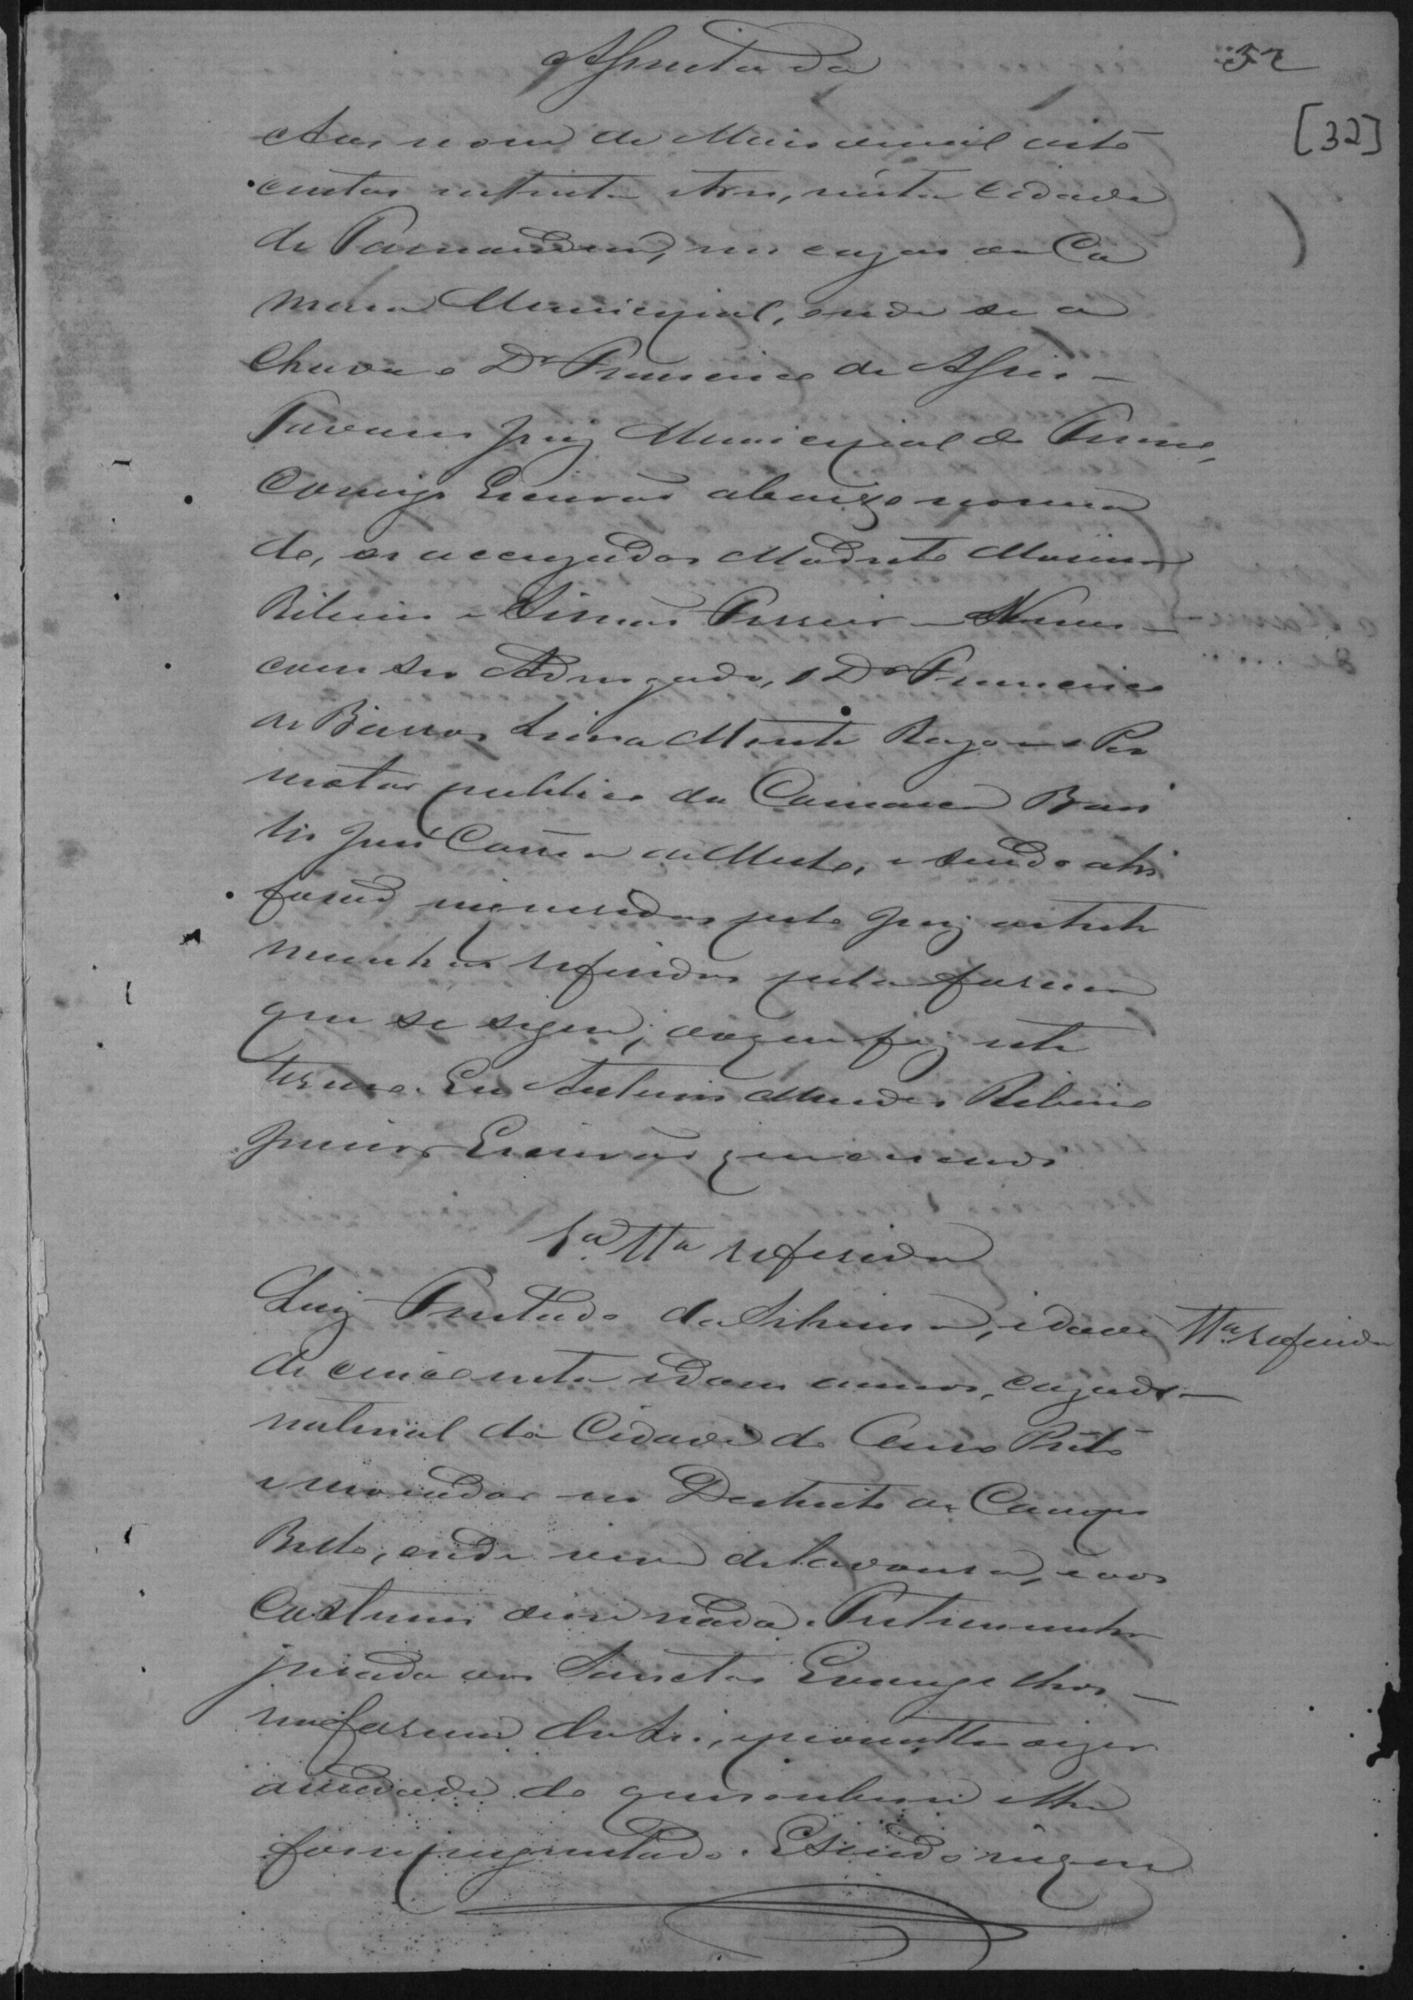 Assentada
32
[32]
Aos nove de Maio de mil oito
centos setenta e tres, nésta Cidade
de Parnamerim, nos cazas da Ca
mara Municipal, onde se a
chava o Dr Francisco de Assis
Tavares Juiz Municipal do Termo,
Comigo Escrivaõ abaixo nomea
do, os accuzados Modesto
Ribeiro e Simaõ Pereira Nunes
com seu Advogado, o Dr Francisco
de Barros Lima Monte Razo e o Pro
motor publico da Comarca
José Corrêa de Mello, e sendo ahi
foraõ inqueridas pelo Juiz as teste
munhas referidas pela forma
que se segue; do que fiz este
termo. Eu Antonio Mendes Ribeiro
Junior Escrivaõ que escrevi
1a Tta referida
Luiz Furtado da Silveira, idade
Tta referida
de cincoenta e dous annos, cazado
natural da Cidade do Ouro Prêto
e morador no Destricto de Campo
Bello, onde vive de lavoura, e aos
Costumes disse nada. Testemunha
jurada aos Sanctos Evangelhos
na forma da Lei, e prometteu dizer
a verdade do que soubesse e lhe
fosse preguntado. E sendo inque